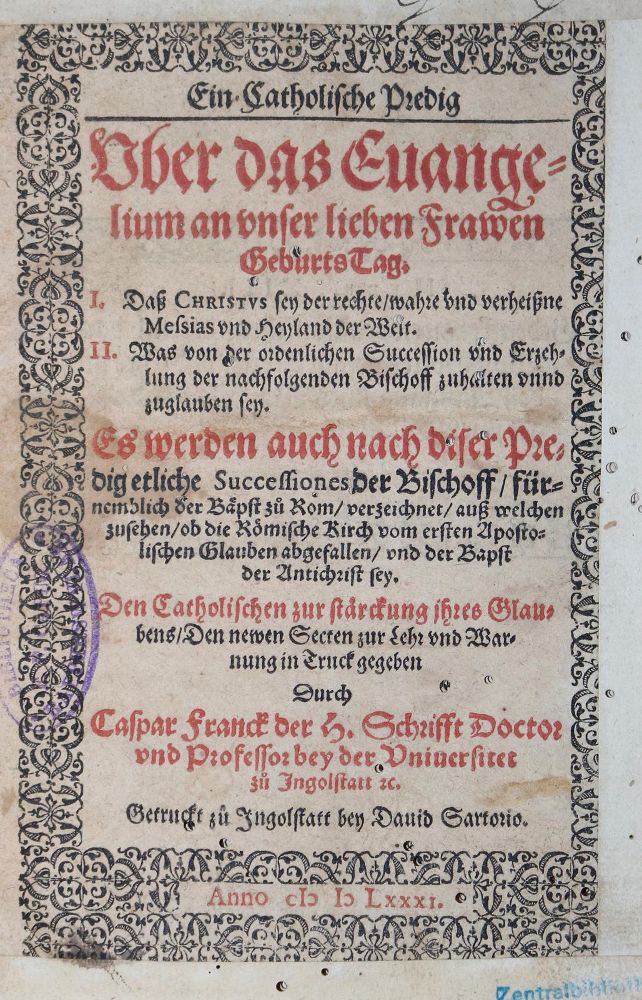 Ein Catholische Predig
Vber das Euange-
lium an vnser lieben Frawen
Geburts Tag.
I. Daß CHRISTVS sey der rechte/wahre vnd verheißne
Messias vnd Heyland der Welt.
II. Was von der ordenlichen Succession vnd Erzeh-
lung der nachfolgenden Bischoff zuhalten vnnd
zuglauben sey.
Es werden auch nach diser Pre-
dig etliche Successiones der Bischoff/ für-
nemblich der Bäpst zů Rom/ verzeichnet/ auß welchen
zusehen/ob die Römische Kirch vom ersten Aposto-
lischen Glauben abgefallen/ vnd der Bapst
der Antichrist sey.
Den Catholischen zur stärckung jhres Glau-
bens/Den newen Secten zur Lehr vnd War-
nung in Truck gegeben
Durch
Caspar Franck der H. Schrifft Doctor
vnd Professor bey der Vniuersitet
zů Ingolstatt ꝛc.
Getruckt zů Ingolstatt bey Dauid Sartorio.
Anno cIↃ IↃ LXXXI.
Zentralbiblioth